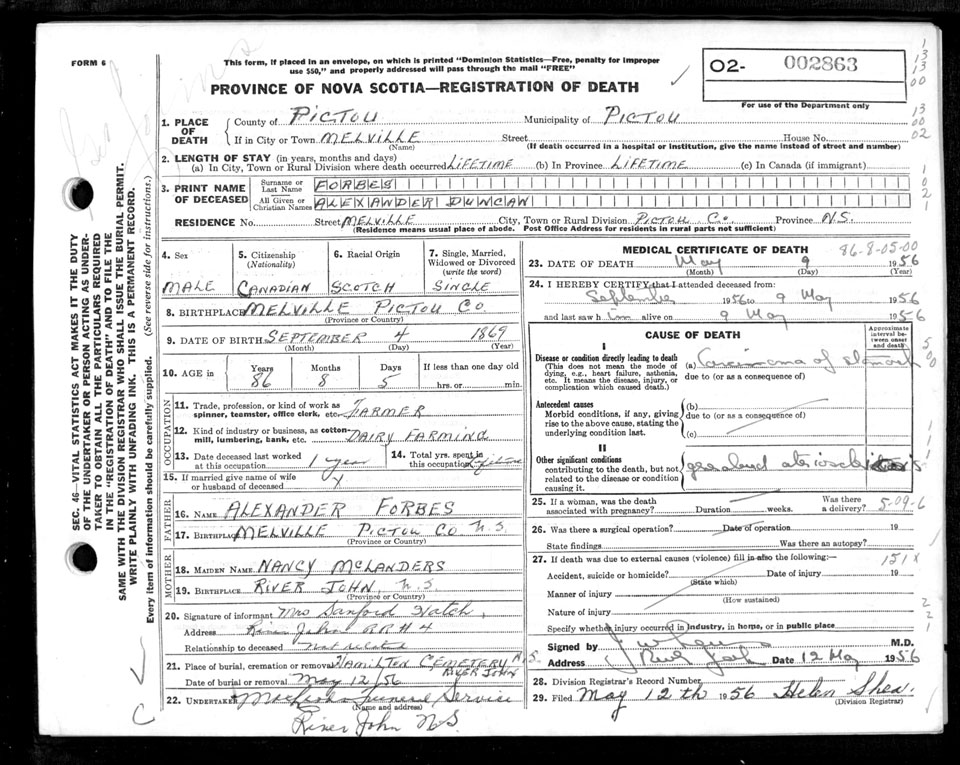 FORM 6
This form, if placed in an envelope, on which is printed "Dominion Statistics—Free, penalty for improper
use $50," and properly addressed will pass through the mail "FREE"
02- 002863
For use of the Department only
PROVINCE OF NOVA SCOTIA—REGISTRATION OF DEATH
1. PLACE OF DEATH
County of PICTOU Municipality of PICTOU
If in City or Town MELVILLE Street House No.
(Name) (If death occurred in a hospital or institution, give the name instead of street and number)
2. LENGTH OF STAY (in years, months and days)
(a) In City, Town or Rural Division where death occurred LIFETIME (b) In Province LIFETIME (c) In Canada (if immigrant)
3. PRINT NAME OF DECEASED
Surname or Last Name FORBES
All Given or Christian Names ALEXANDER DUNCAN
RESIDENCE No. Street MELVILLE City, Town or Rural Division PICTOU Co. Province N.S.
(Residence means usual place of abode. Post Office Address for residents in rural parts not sufficient)
4. Sex
MALE
5. Citizenship (Nationality)
CANADIAN
6. Racial Origin
SCOTCH
7. Single, Married, Widowed or Divorced (write the word)
SINGLE
8. BIRTHPLACE MELVILLE PICTOU CO
(Province or Country)
9. DATE OF BIRTH SEPTEMBER 4 1869
(Month) (Day) (Year)
10. AGE in Years Months Days If less than one day old
86 8 5 hrs. or min.
OCCUPATION
11. Trade, profession, or kind of work as
spinner, teamster, office clerk, etc. FARMER
12. Kind of industry or business, as cotton-
mill, lumbering, bank, etc. DAIRY FARMING
13. Date deceased last worked
at this occupation 1 year
14. Total yrs. spent in
this occupation Lifetime
15. If married give name of wife
or husband of deceased X
FATHER
16. NAME ALEXANDER FORBES
17. BIRTHPLACE MELVILLE PICTOU CO N.S.
(Province or Country)
MOTHER
18. MAIDEN NAME NANCY McLANDERS
19. BIRTHPLACE RIVER JOHN N.S.
(Province or Country)
20. Signature of informant Mrs Sanford Hatch
Address River John RR#4
Relationship to deceased not related
21. Place of burial, cremation or removal HAMILTEN CEMETERY N.S.
RIVER JOHN
Date of burial or removal May 12/56
22. UNDERTAKER Funeral Service
(Name and address)
River John N.S
MEDICAL CERTIFICATE OF DEATH
86-8-05-00
23. DATE OF DEATH May 9 1956
(Month) (Day) (Year)
24. I HEREBY CERTIFY that I attended deceased from:
September 1956 to 9 May 1956
and last saw h im alive on 9 May 1956
CAUSE OF DEATH
Approximate interval between onset and death
I
Disease or condition directly leading to death
(This does not mean the mode of
dying, e.g., heart failure, asthenia,
etc. It means the disease, injury, or
complication which caused death.)
(a) Carcinoma of stomach
due to (or as a consequence of)
Antecedent causes
Morbid conditions, if any, giving
rise to the above cause, stating the
underlying condition last.
(b)
due to (or as a consequence of)
(c)
II
Other significant conditions
contributing to the death, but not
related to the disease or condition
causing it.
25. If a woman, was the death
associated with pregnancy? Duration weeks. Was there a delivery?
5-09-6
26. Was there a surgical operation? Date of operation 19
State findings Was there an autopsy?
27. If death was due to external causes (violence) fill in also the following:—
151X
Accident, suicide or homicide? Date of injury 19
(State which)
Manner of injury
(How sustained)
Nature of injury
Specify whether injury occurred in industry, in home, or in public place
Signed by M.D.
Address Date 12 May 1956
28. Division Registrar's Record Number
29. Filed May 12th 1956 Helen Shea.
(Division Registrar)
SEC. 46—VITAL STATISTICS ACT MAKES IT THE DUTY
OF THE UNDERTAKER OR PERSON ACTING AS UNDER-
TAKER TO OBTAIN ALL THE PARTICULARS REQUIRED
IN THE "REGISTRATION OF DEATH" AND TO FILE THE
SAME WITH THE DIVISION REGISTRAR WHO SHALL ISSUE THE BURIAL PERMIT.
WRITE PLAINLY WITH UNFADING INK. THIS IS A PERMANENT RECORD.
Every item of information should be carefully supplied. (See reverse side for instructions.)